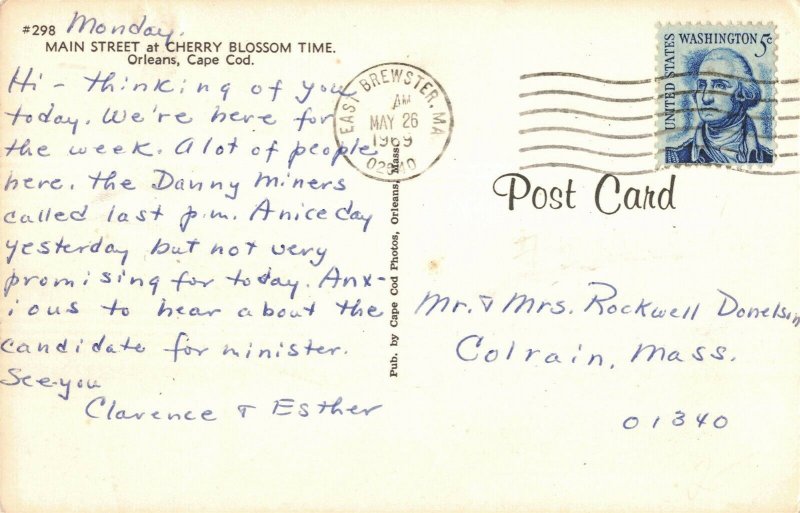 #298 Monday.
MAIN STREET at CHERRY BLOSSOM TIME.
Orleans, Cape Cod.
Hi - thinking of you
today. We're here for
the week. A lot of people
here. The Danny Miners
called last p.m. A nice day
yesterday but not very
promising for today. Anx-
ious to hear about the
candidate for minister.
See you
Clarence & Esther
EAST BREWSTER, MA
AM
MAY 26
1969
UNITED STATES
WASHINGTON 5c
Post Card
Pub. by Cape Cod Photos, Orleans, Mass.
Mr. & Mrs. Rockwell Donelson
Colrain, Mass.
01340